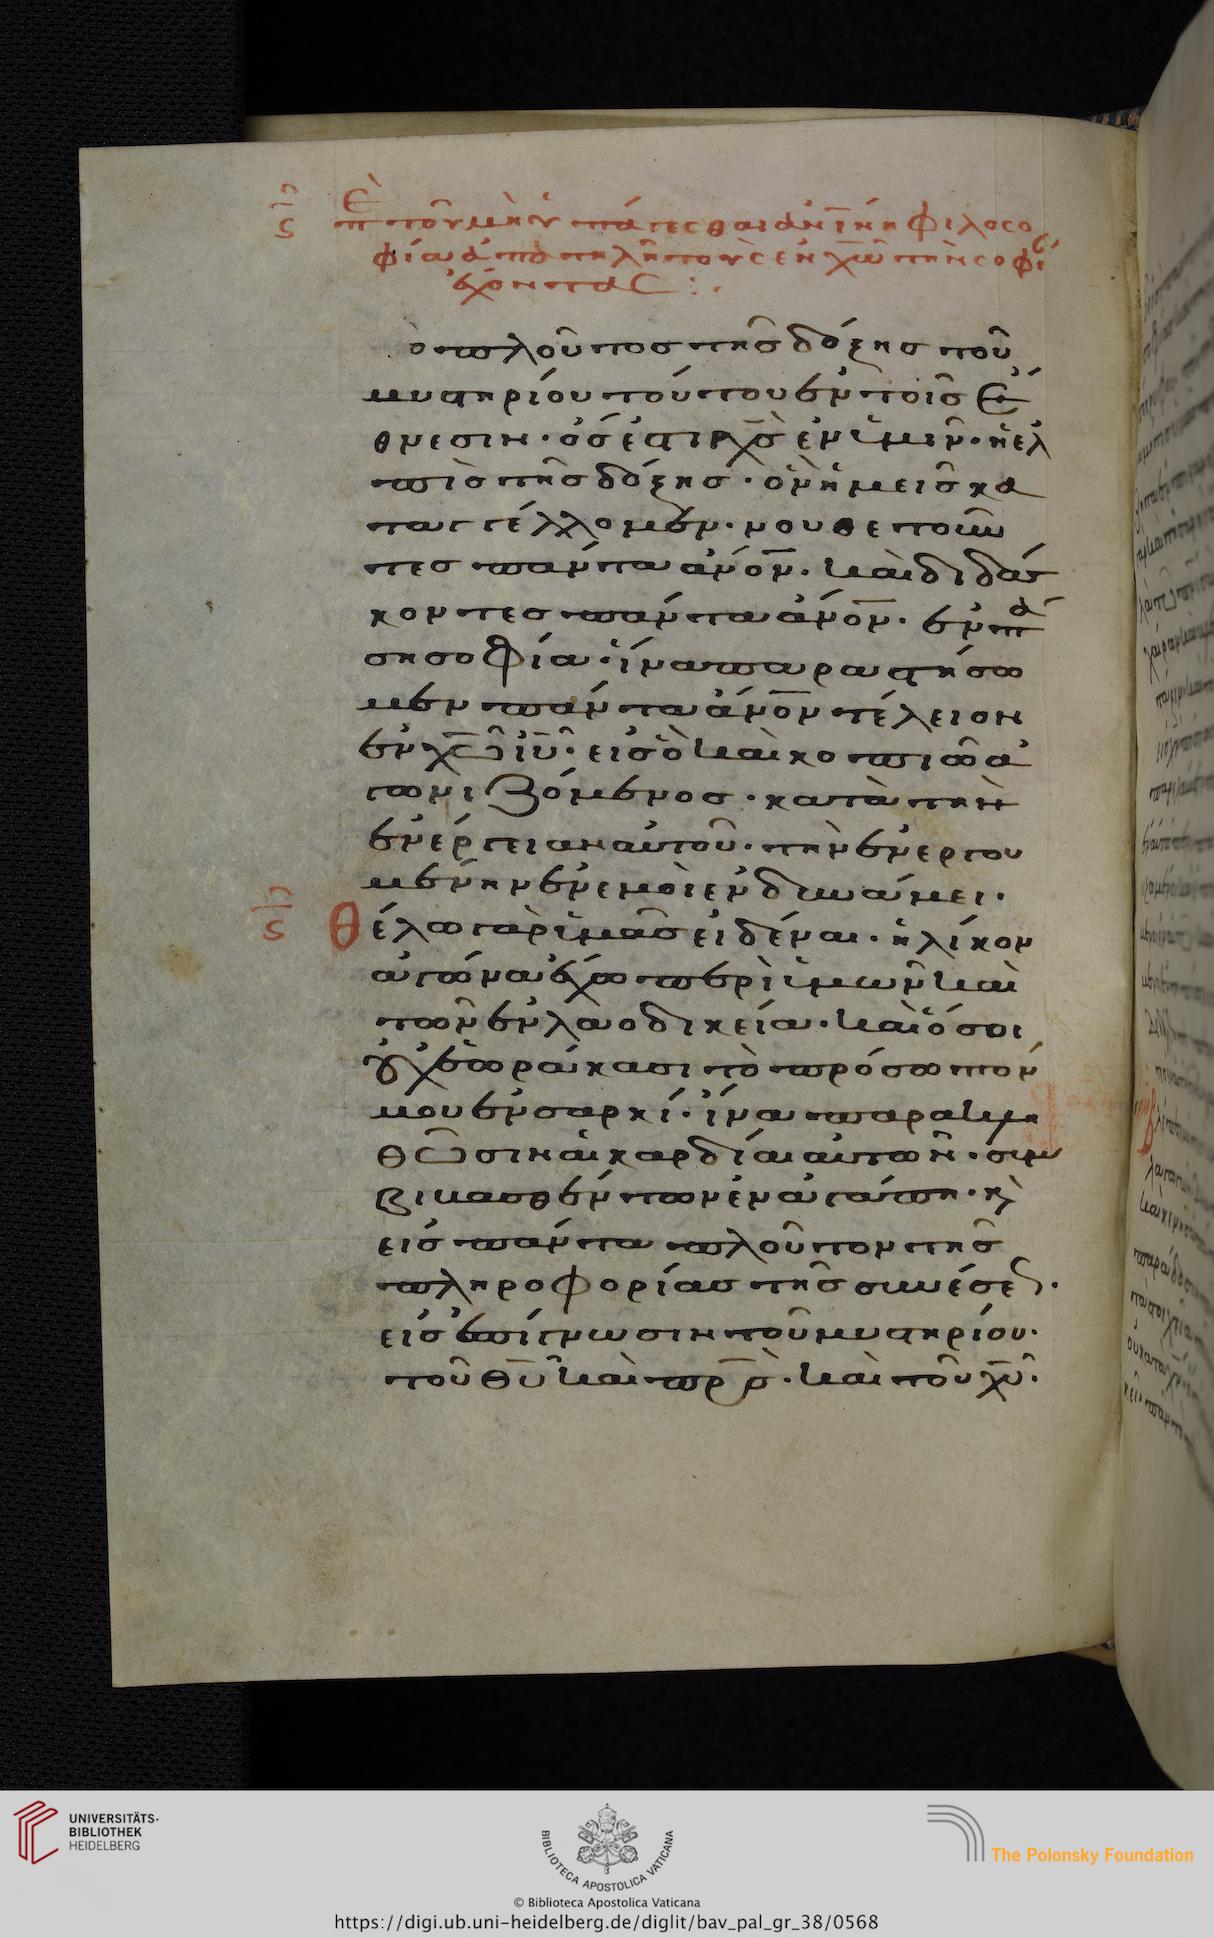 ϛ Ἐπὶ τοῦ μὴν ἀπάγεσθαι ἀν̅ι̅νη φιλοσο
φία ἀπὸ τῆς ἐν χ̅ω̅ τὴν σοφί
ἔχοντας :.
ὁ πλοῦτος τῆς δόξης τοῦ
μυστηρίου τούτου ἐν τοῖς ἔ
θνεσιν· ὅς ἐστι χ̅ς̅ ἐν ὑμῖν· ἡ ἐλ
πὶς τῆς δόξης· ὃν ἡμεῖς κα
ταγγέλλομεν· νουθετοῦν
τες πάντα ἄν̅ο̅ν̅· καὶ διδάσ
κοντες πάντα ἄν̅ο̅ν̅· ἐν πά
σῃ σοφία· ἵνα παραστήσω
μεν πάντα ἄν̅ο̅ν̅ τέλειον
ἐν χ̅ω̅ ἰ̅υ̅· εἰς ὃ καὶ κοπιῶ ἀ
γωνιζόμενος· κατὰ τὴν
ἐνέργειαν αὐτοῦ· τὴν ἐνεργου
μένην ἐν ἐμοὶ ἐν δυνάμει·
ϛ Θέλω γὰρ ὑμᾶς εἰδέναι· ἡλίκον
ἀγῶνα ἔχω περὶ ὑμῶν καὶ
τῶν ἐν λαοδικεία· καὶ ὅσοι
οὐχ ἑωράκασι τὸ πρόσωπόν
μου ἐν σαρκί· ἵνα παρακλη
θῶσιν αἱ καρδίαι αὐτῶν· συμ
βιβασθέντων ἐν ἀγάπη· κ̀
εἰς πάντα πλοῦτον τῆς
πληροφορίας τῆς συνέσε·
εἰς ἐπίγνωσιν τοῦ μυστηρίου·
τοῦ θ̅υ̅ καὶ π̅ρ̅ς̅· καὶ τοῦ χ̅υ̅·
UNIVERSITÄTS-
BIBLIOTHEK
HEIDELBERG
BIBLIOTECA APOSTOLICA VATICANA
© Biblioteca Apostolica Vaticana
The Polonsky Foundation
https://digi.ub.uni-heidelberg.de/diglit/bav_pal_gr_38/0568